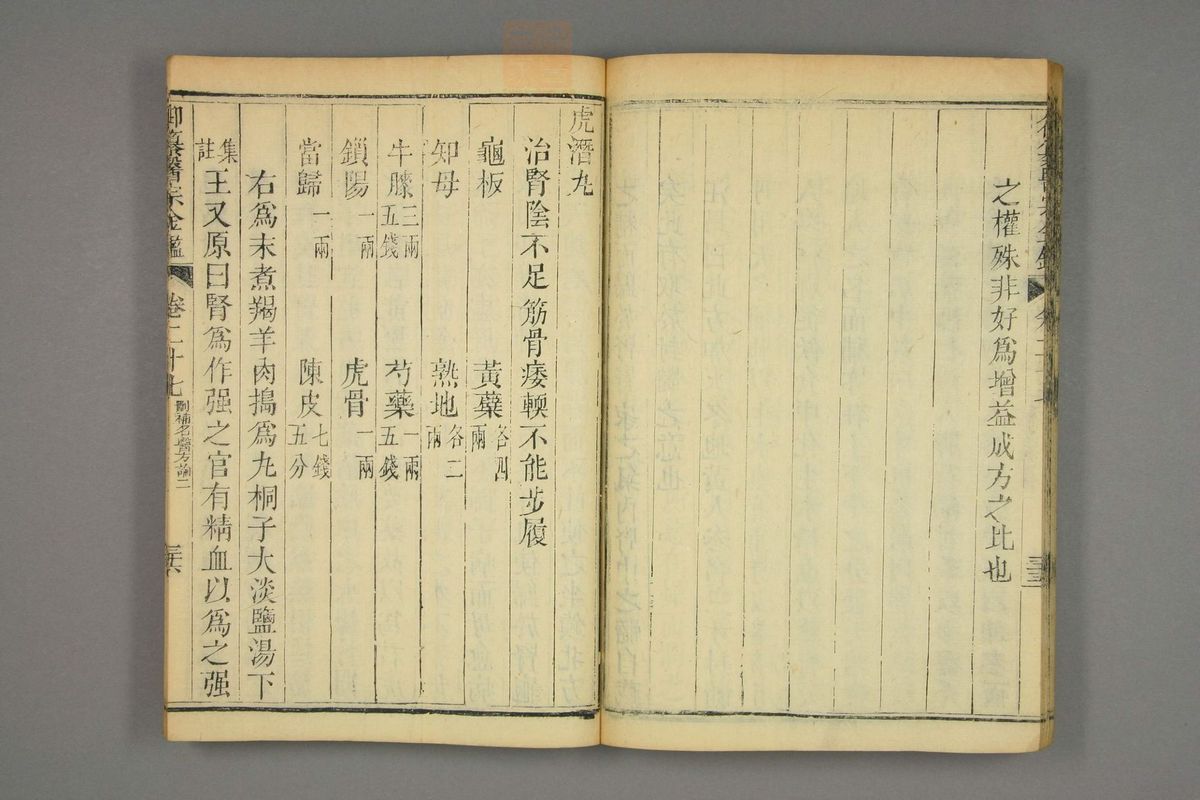 之權殊非好爲增益成方之比也
虎潛丸
治腎陰不足筋骨痿輭不能步履
龜板 黃蘗各四兩
知母 熟地各二兩
牛膝三兩五錢 芍藥一兩五錢
鎖陽一兩 虎骨一兩
當歸一兩 陳皮七錢五分
右爲末煮羯羊肉搗爲丸桐子大淡鹽湯下
集註王又原曰腎爲作强之官有精血以爲之强
御纂醫宗金鑑 卷二十七 刪補名醫方論二 三六